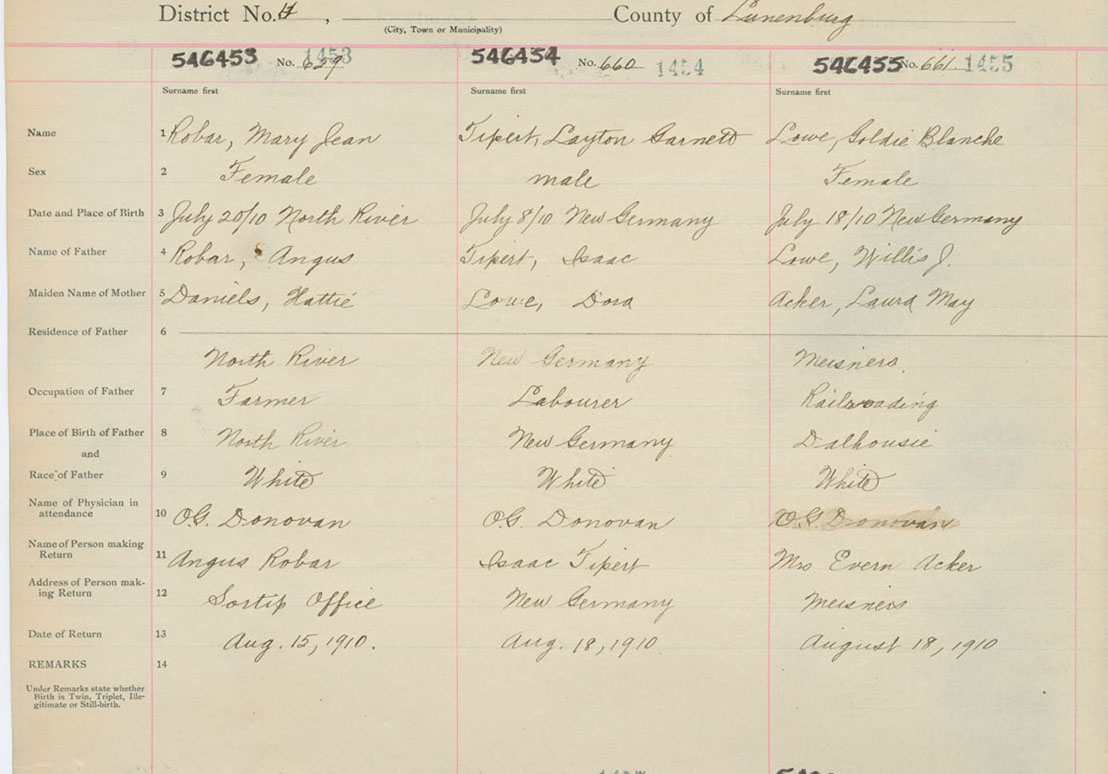 District No. 4, County of Lunenburg
(City, Town or Municipality)
546453 No. 659 1453 546454 No. 660 1454 546455 No. 661 1455
Surname first Surname first Surname first
Name 1 Robar, Mary Jean Tipert, Layton Garnett Lowe, Goldie Blanche
Sex 2 Female male Female
Date and Place of Birth 3 July 20/10 North River July 8/10 New Germany July 18/10 New Germany
Name of Father 4 Robar, Angus Tipert, Isaac Lowe, Willis J.
Maiden Name of Mother 5 Daniels, Hattie Lowe, Dora Acker, Laura May
Residence of Father 6
North River New Germany Meisners.
Occupation of Father 7 Farmer Labourer Railroading
Place of Birth of Father 8 North River New Germany Dalhousie
and
Race of Father 9 White White White
Name of Physician in
attendance 10 O.G. Donovan O.G. Donovan O.G. Donovan
Name of Person making
Return 11 Angus Robar Isaac Tipert Mrs Evern Acker
Address of Person mak-
ing Return 12 Office New Germany Meisners
Date of Return 13 Aug. 15, 1910. Aug. 18, 1910. August 18, 1910
REMARKS 14
Under Remarks state whether
Birth is Twin, Triplet, Ille-
gitimate or Still-birth.